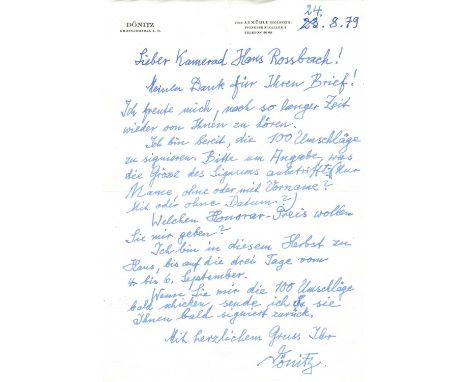 DÖNITZ
GROSSADMIRAL A. D.
24.
23. 8.79
Lieber Kamerad Hans Rossbach!
Meinen Dank für Ihren Brief!
Ich freute mich, nach so langer Zeit
wieder von Ihnen zu hören.
Ich bin bereit, die 100 Umschläge
zu signieren. Bitte um Angabe, was
die Grösse des Signums anbetrifft, (Nur
Name, ohne oder mit Vorname?
Mit oder ohne Datum?)
Welchen Honorar-Preis wollen
Sie mir geben?
Ich bin in diesem Herbst zu
Haus, bis auf die drei Tage vom
4. bis 6. September.
Wenn Sie mir die 100 Umschläge
bald schicken, sende ich sie
Ihnen bald signiert zurück.
Mit herzlichem Gruss Ihr
Dönitz.